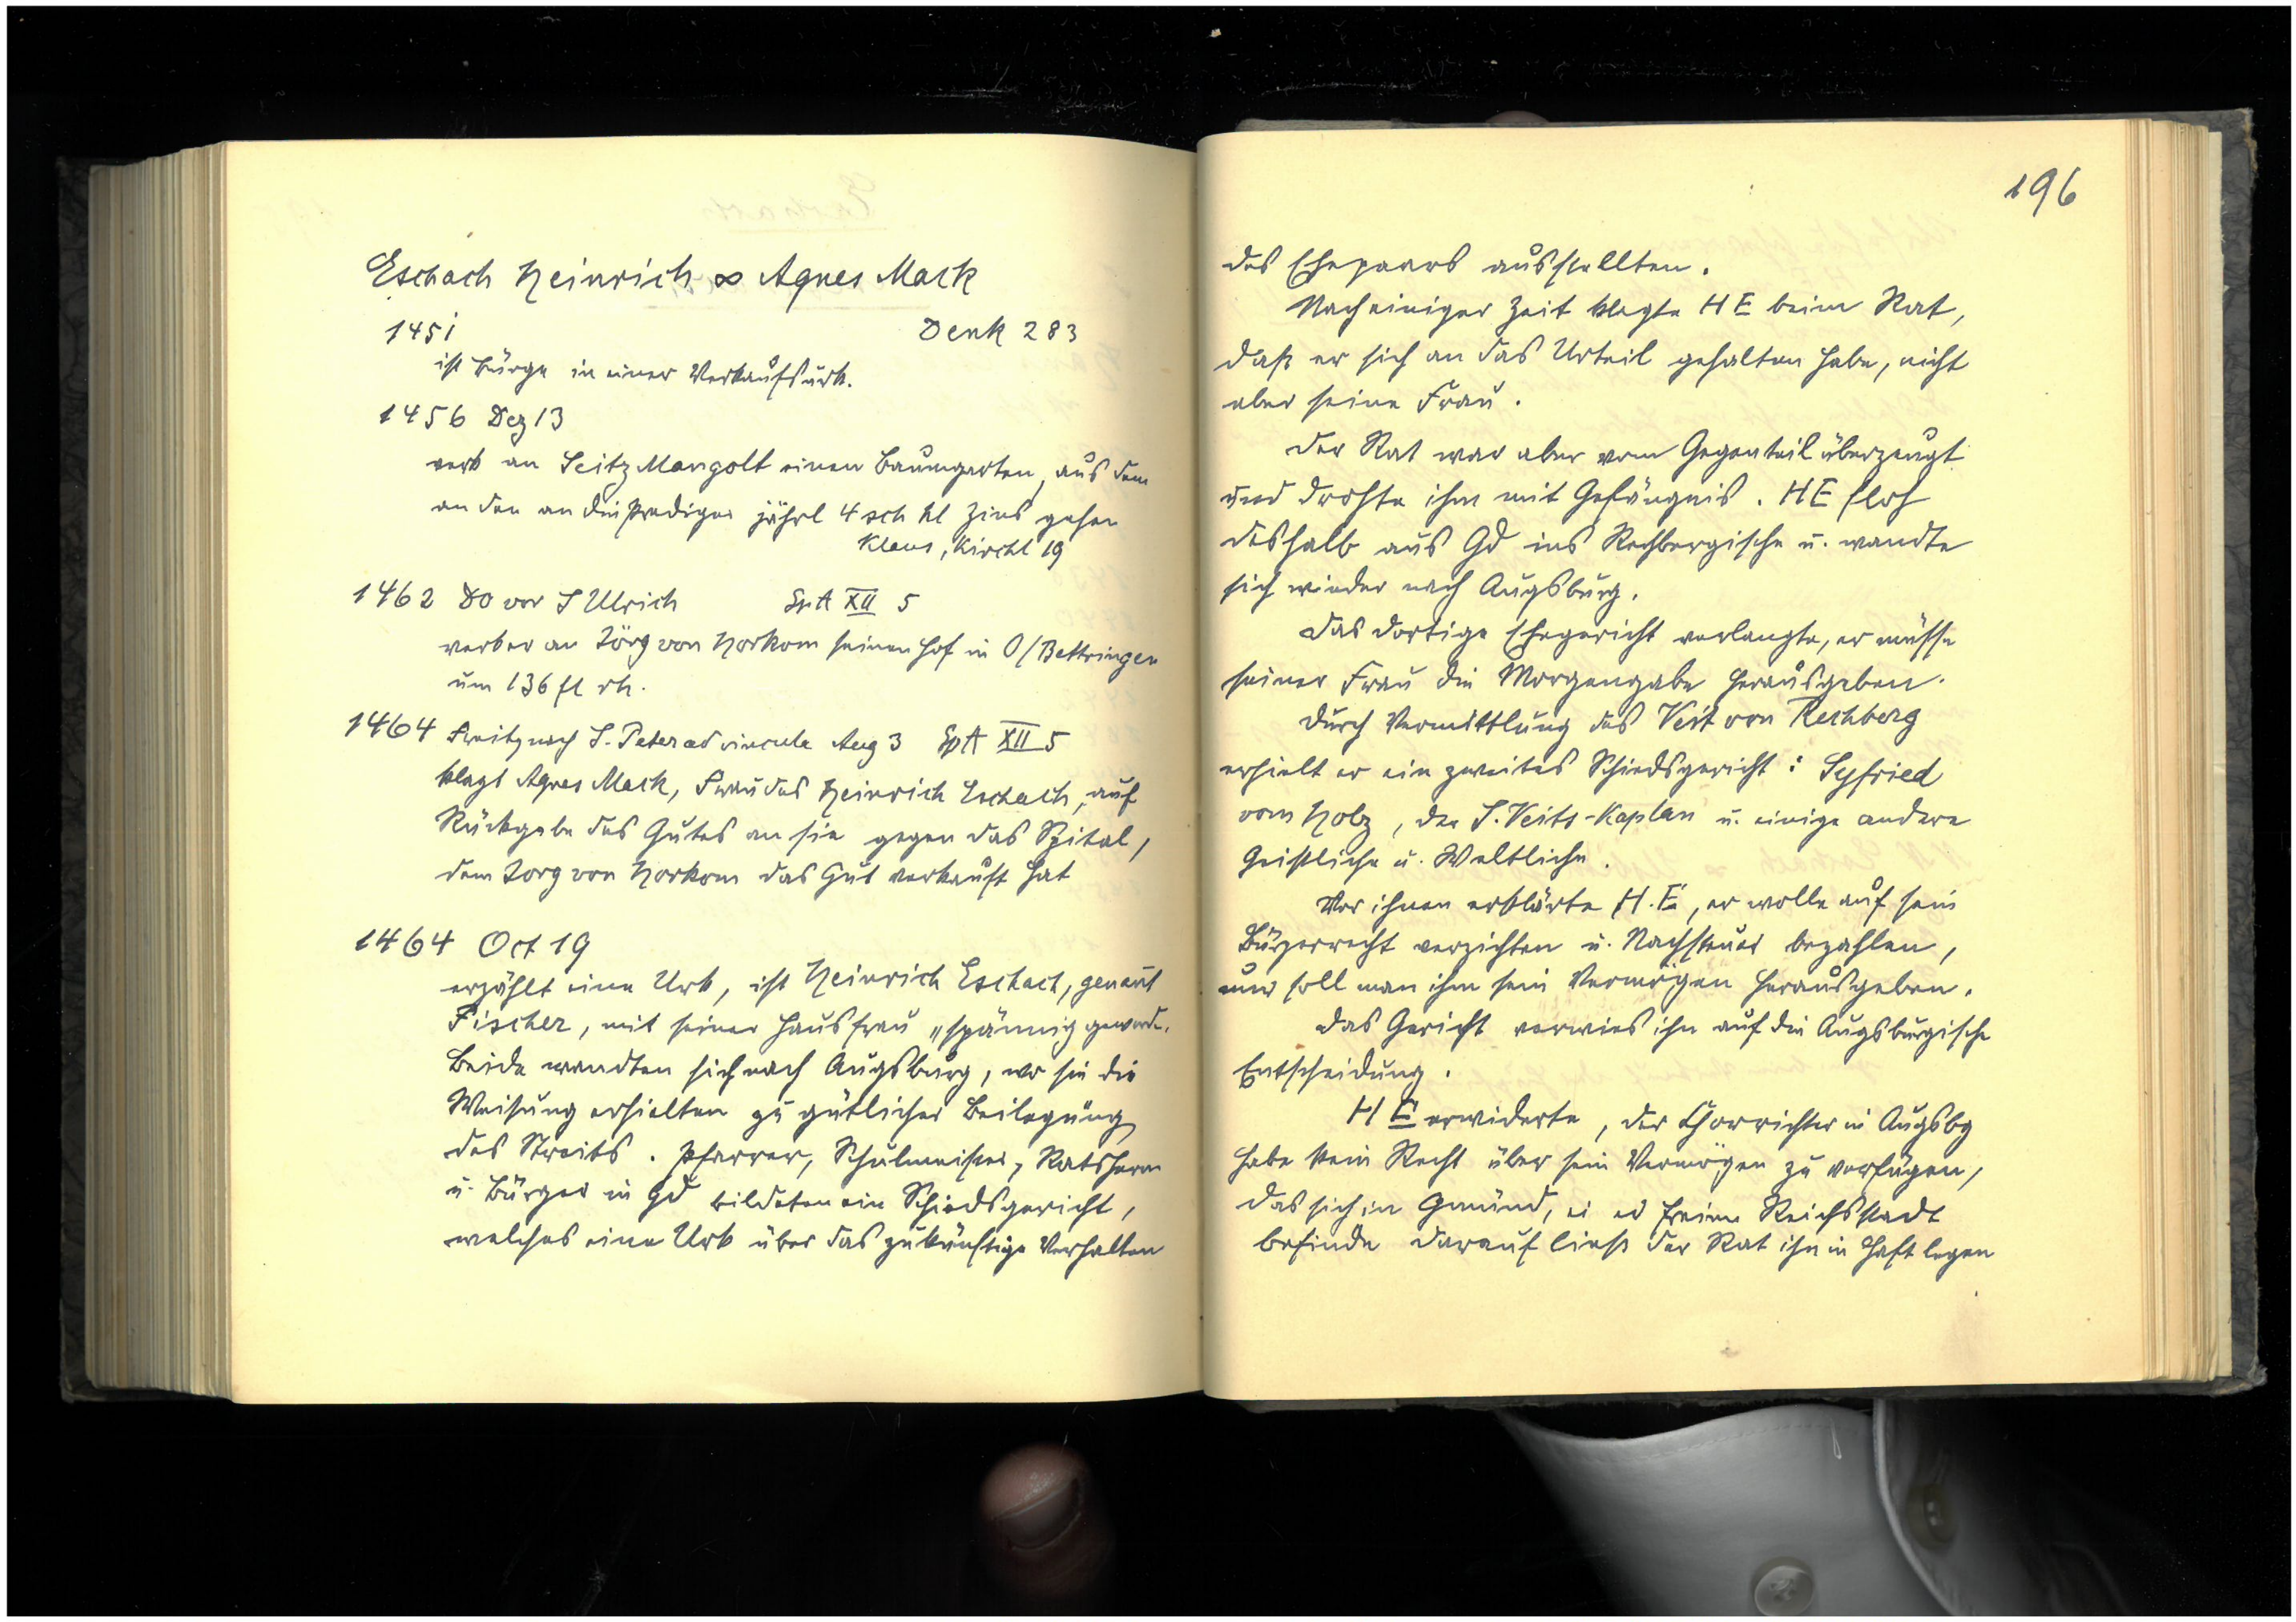 Eschach Heinrich ∞ Agnes Mack
1451 Denk 283
ist Bürge in einer Verkaufsurk.
1456 Dez 13
verk an Seitz Mangolt einen Baumgarten, aus dem
an den an die Prediger jährl 4 sch hl Zins gehen
Klaus, Kirchl 19
1462 Do vor S Ulrich SpA XII 5
verk er an Jörg von Horkom seinen Hof in O/Bettringen
um 136 fl rh.
1464 Freitg nach S. Peter ad vincula Aug 3 SpA XII 5
klagt Agnes Mack, Frau des Heinrich Eschach, auf
Rückgabe des Gutes an sie gegen das Spital,
dem Jorg von Horkom das Gut verkauft hat
1464 Oct 19
erzählt eine Urk, ist Heinrich Eschach, genant
Fischer, mit seiner Hausfrau „spännig geword.
Beide wandten sich nach Augsburg, wo sie die
Weisung erhielten zu gütlicher Beilegung
des Streits. Pfarrer, Schulmeister, Ratsherrn
u. Bürger in Gd bildeten ein Schiedsgericht,
welches eine Urk über das zukünftige Verhalten
196
des Ehepaars ausstellten.
Nach einiger Zeit klagte HE beim Rat,
daß er sich an das Urteil gehalten habe, nicht
aber seine Frau.
Der Rat war aber vom Gegenteil überzeugt
und drohte ihm mit Gefängnis. HE floh
deshalb aus Gd ins Rechbergische u. wandte
sich wieder nach Augsburg.
Das dortige Ehegericht verlangte, er müsse
seiner Frau die Morgengabe herausgeben.
Durch Vermittlung des Veit von Rechberg
erhielt er ein zweites Schiedsgericht: Syfried
vom Holz, der S. Veits-Kaplan u. einige andere
Geistliche u. Weltliche.
Vor ihnen erklärte H.E, er wolle auf sein
Bürgerrecht verzichten u. Nachsteuer bezahlen,
nur soll man ihm sein Vermögen herausgeben.
Das Gericht verwies ihn auf die Augsburgische
Entscheidung.
HE erwiderte, der Chorrichter in Augsbg
habe kein Recht über sein Vermögen zu verfügen,
das sich in Gmünd, freien Reichsstadt
befinde darauf ließ der Rat ihn in Haft legen